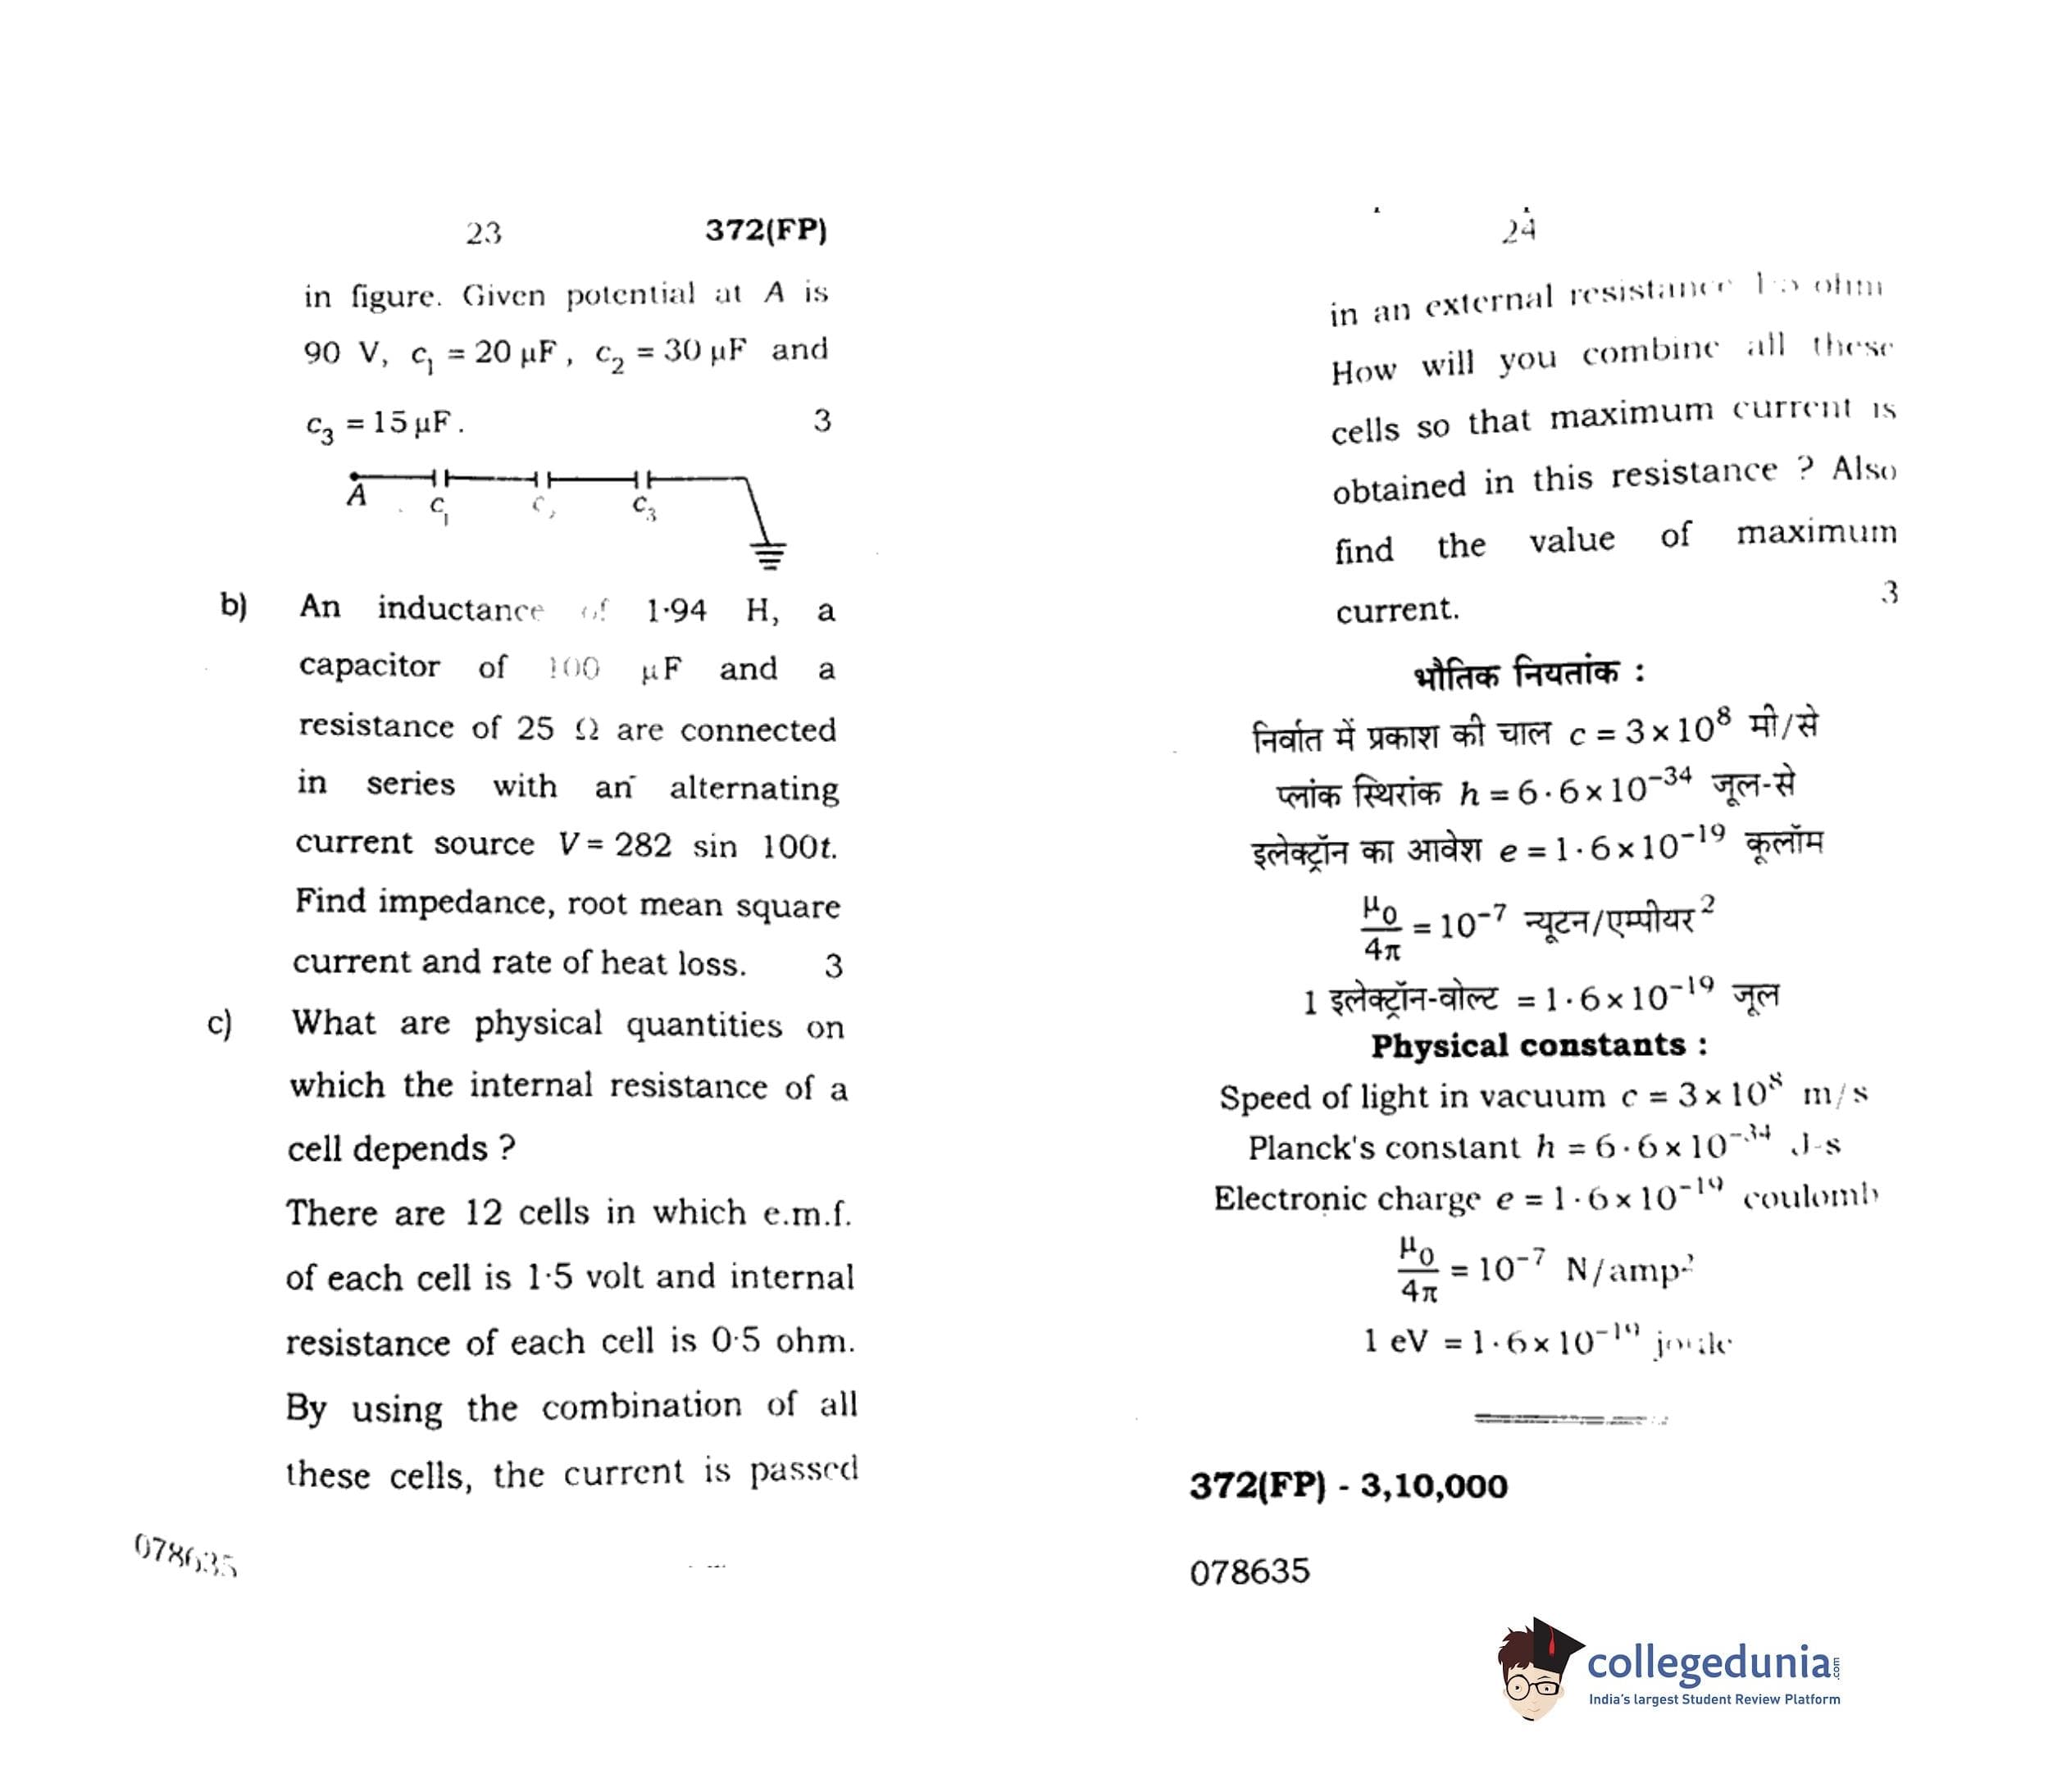 23 372(FP)
in figure. Given potential at A is
90 V, c₁ = 20 µF, c₂ = 30 µF and
c₃ = 15 µF. 3
A C₁ C₃
b) An inductance of 1·94 H, a
capacitor of 100 µF and a
resistance of 25 Ω are connected
in series with an alternating
current source V = 282 sin 100t.
Find impedance, root mean square
current and rate of heat loss. 3
c) What are physical quantities on
which the internal resistance of a
cell depends ?
There are 12 cells in which e.m.f.
of each cell is 1·5 volt and internal
resistance of each cell is 0·5 ohm.
By using the combination of all
these cells, the current is passed
078635
24
in an external resistance ohm
How will you combine all these
cells so that maximum current is
obtained in this resistance ? Also
find the value of maximum
current. 3
भौतिक नियतांक :
निर्वात में प्रकाश की चाल c = 3 × 10⁸ मी/से
प्लांक स्थिरांक h = 6·6 × 10⁻³⁴ जूल-से
इलेक्ट्रॉन का आवेश e = 1·6 × 10⁻¹⁹ कूलॉम
μ₀/4π = 10⁻⁷ न्यूटन/एम्पीयर²
1 इलेक्ट्रॉन-वोल्ट = 1·6 × 10⁻¹⁹ जूल
Physical constants :
Speed of light in vacuum c = 3 × 10⁸ m/s
Planck's constant h = 6·6 × 10⁻³⁴ J-s
Electronic charge e = 1·6 × 10⁻¹⁹ coulomb
μ₀/4π = 10⁻⁷ N/amp²
1 eV = 1·6 × 10⁻¹⁹ joule
372(FP) - 3,10,000
078635
collegedunia.com
India's largest Student Review Platform